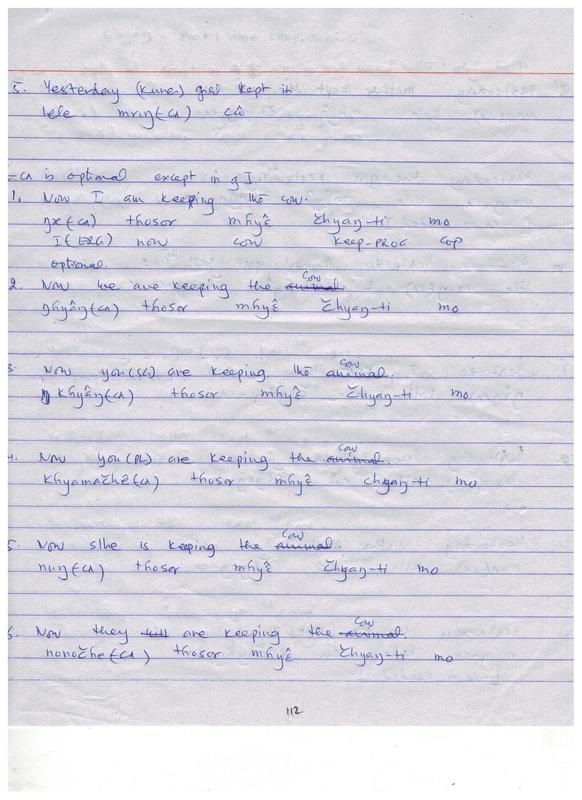 5. Yesterday (Kuner) girl kept it
tele mriŋ(-cʌ) cû
=cʌ is optional except in g I
1. Now I am keeping the cow.
ŋx(-cʌ) thosor mɦyɛ̂ čhyaŋ-ti mo
I(-ERG) now cow keep-PROG cop
optional.
2. Now we are keeping the animal cow
ŋɦyâŋ(-cʌ) thosor mɦyɛ̂ čhyaŋ-ti mo
3. Now you(SG) are keeping the animal. cow
khyâŋ(-cʌ) thosor mɦyɛ̂ čhyaŋ-ti mo
4. Now you(PL) are keeping the animal. cow
khyamačhê(-cʌ) thosor mɦyɛ̂ chyaŋ-ti mo
5. Now s/he is keeping the animal. cow
nuŋ(-cʌ) thosor mɦyɛ̂ čhyaŋ-ti mo
6. Now they are keeping the animal. cow
nonočhe(-cʌ) thosor mɦyɛ̂ čhyaŋ-ti mo
112